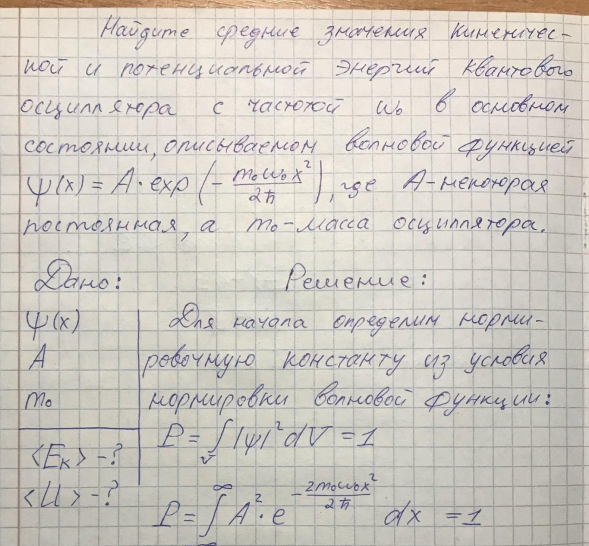 Найдите средние значения кинетичес-
кой и потенциальной энергий квантового
осциллятора с частотой ω₀ в основном
состоянии, описываемом волновой функцией
ψ(x) = A · exp (- m₀ω₀x²/2ħ), где A - некоторая
постоянная, а m₀ - масса осциллятора.
Дано: Решение:
ψ(x)
A
m₀
<Eₖ> - ?
<U> - ?
Для начала определим норми-
ровочную константу из условия
нормировки волновой функции:
P = ∫_V |ψ|² dV = 1
P = ∫_∞^∞ A² · e^(- 2m₀ω₀x²/2ħ) dx = 1